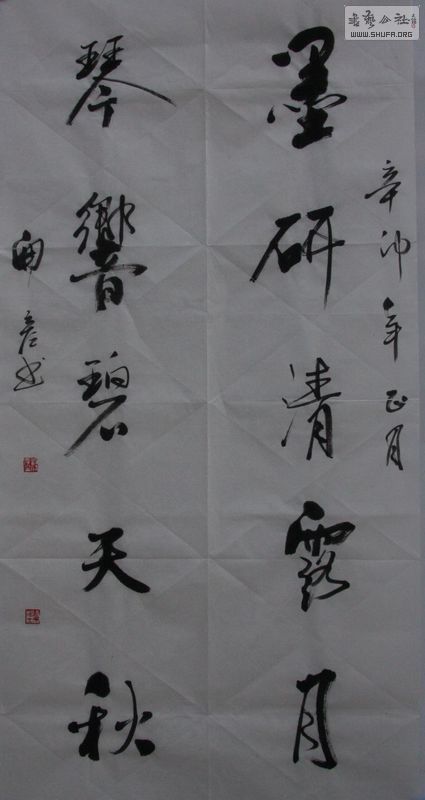 辛卯年正月
墨研清露月
琴響碧天秋
書藝公社
WWW.SHUFA.ORG